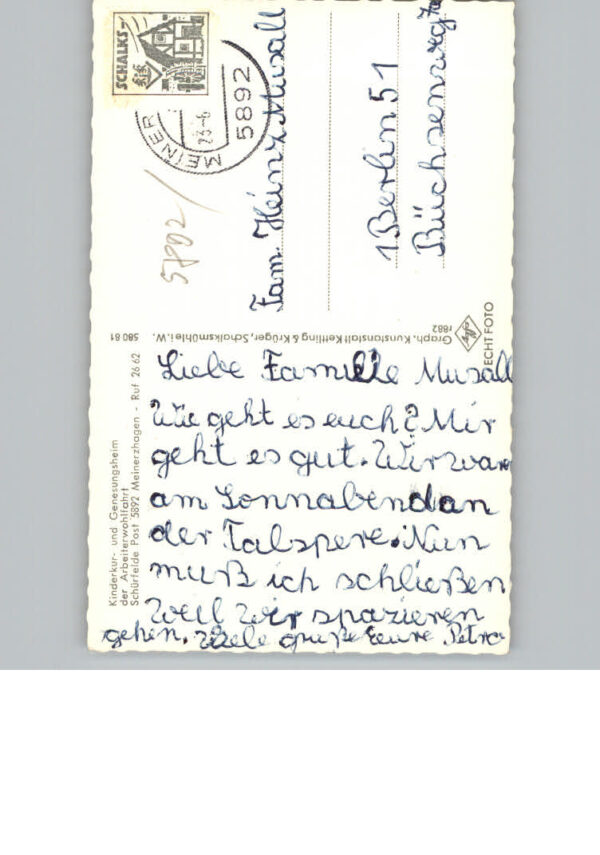 SCHALKS-
MEINER
5892
23.-6
5892/
Fam. Heinz Musall
1 Berlin 51
Kinderkur- und Genesungsheim
der Arbeiterwohlfahrt
Schürfelde Post 5892 Meinerzhagen - Ruf 26 62
580 81
Graph. Kunstanstalt Kettling & Krüger, Schalksmühle i. W.
r882
Agfa
ECHT FOTO
Liebe Familie Musall
Wie geht es euch? Mir
geht es gut. Wir waren
am Sonnabend an
der Talspere. Nun
muß ich schließen
weil wir spazieren
gehen. Viele grüße Eeure Petra